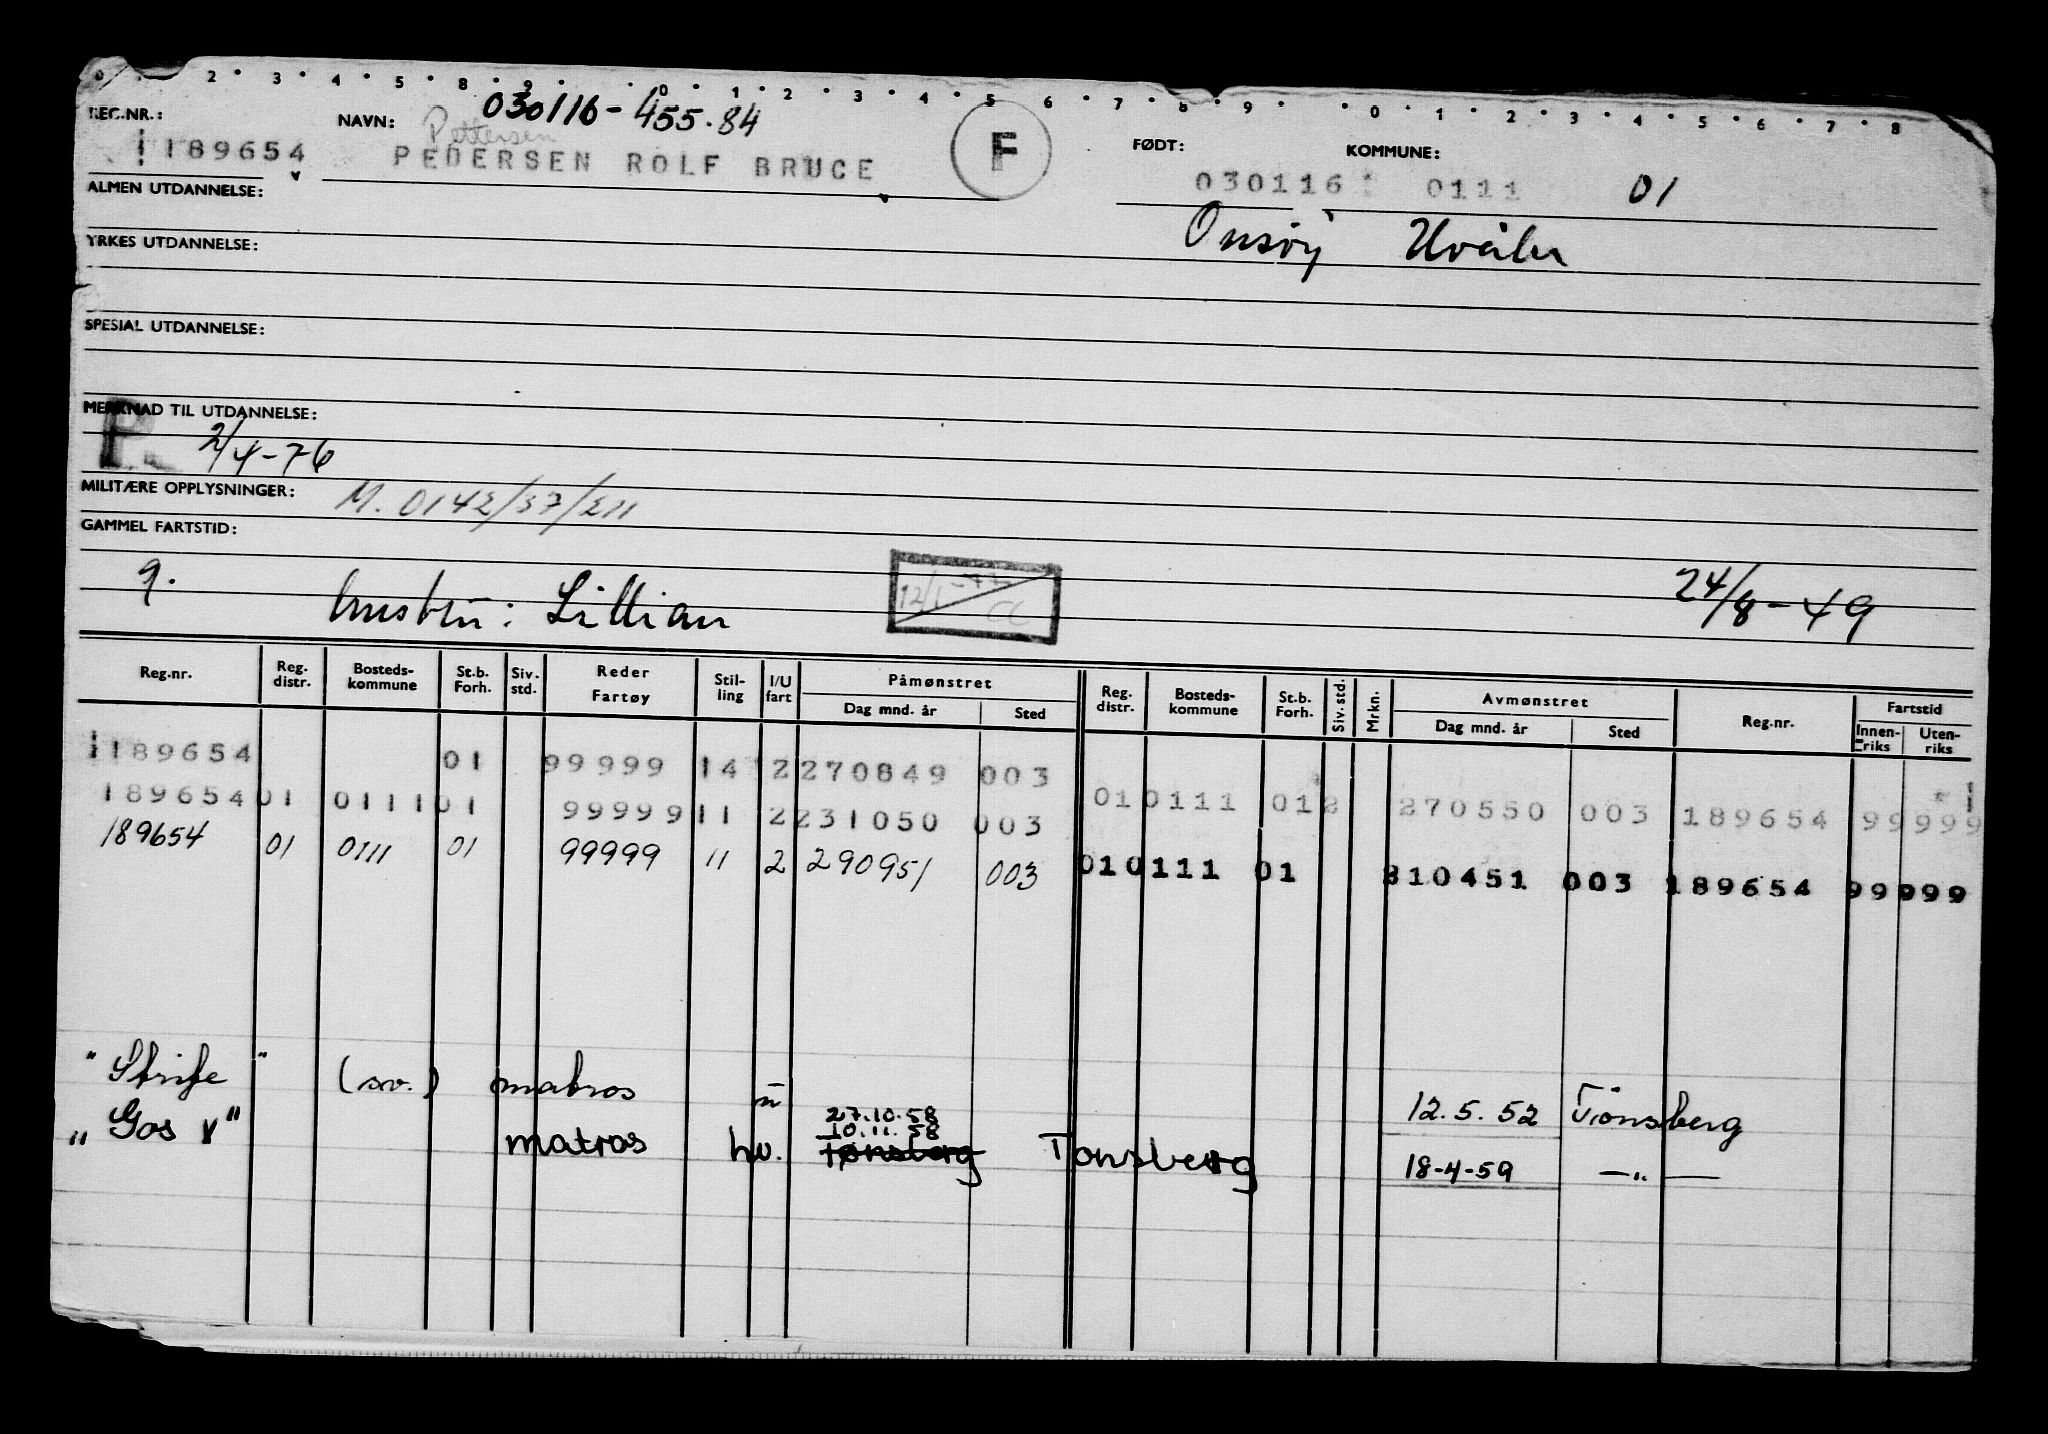 2 3 4 5 8 9 0 1 2 3 4 5 6 7 8 9 0 1 2 3 4 5 6 7 8
030116-455.84
REG.NR.: NAVN: Pettersen FØDT: KOMMUNE:
189654 PEDERSEN ROLF BRUCE F 030116 0111 01
ALMEN UTDANNELSE:
Onsøy Hvaler
YRKES UTDANNELSE:
SPESIAL UTDANNELSE:
MERKNAD TIL UTDANNELSE:
P 2/4-76
MILITÆRE OPPLYSNINGER: M. 0142/37/211
GAMMEL FARTSTID:
9. hustru: Lillian 12/1 24/8-49
Reg.nr. Reg. distr. Bosteds-kommune St.b. Forh. Siv. std. Reder Fartøy Stil-ling I/U fart Påmønstret Dag mnd. år Sted Reg. distr. Bosteds-kommune St.b. Forh. Siv. std. Mrkn. Avmønstret Dag mnd. år Sted Reg.nr. Fartstid Innen-riks Uten-riks
189654 01 99999 14 2 270849 003 01 0111 01 2 270550 003 189654 99999
189654 01 0111 01 99999 11 2 231050 003 01 0111 01 310451 003 189654 99999
189654 01 0111 01 99999 11 2 290951 003
" " (sv.) matros u 12.5.52 Tønsberg
„ Gos V" matros hv. 27.10.58 10.11.58 Tønsberg Tønsberg 18-4-59 — „ —